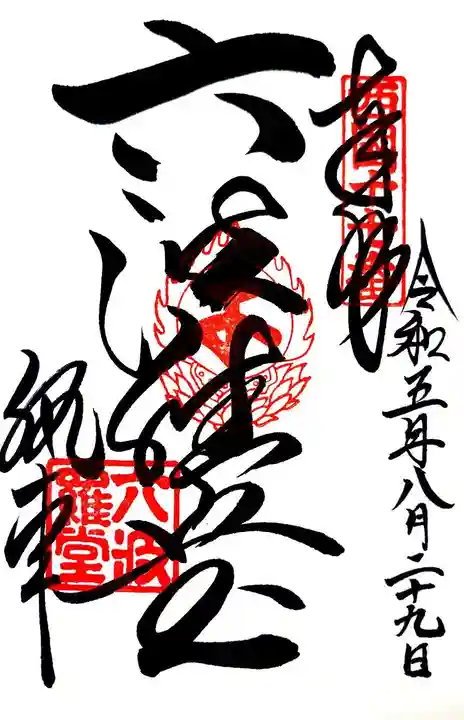 奉拝
西国十七番
令和五年八月二十九日
六波羅堂
六波羅堂